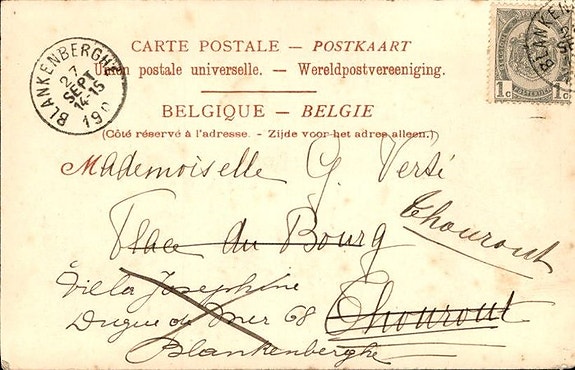 CARTE POSTALE — POSTKAART
Union postale universelle. — Wereldpostvereeniging.
BELGIQUE — BELGIE
(Côté réservé à l'adresse. - Zijde voor het adres alleen.)
BLANKENBERGHE
27
SEPT
14-15
190
BLANKENB
1c 1c
Mademoiselle G. Verté
Place du Bourg
Thourout
Thourout
Villa Josephine
Digue de Mer 68
Blankenberghe